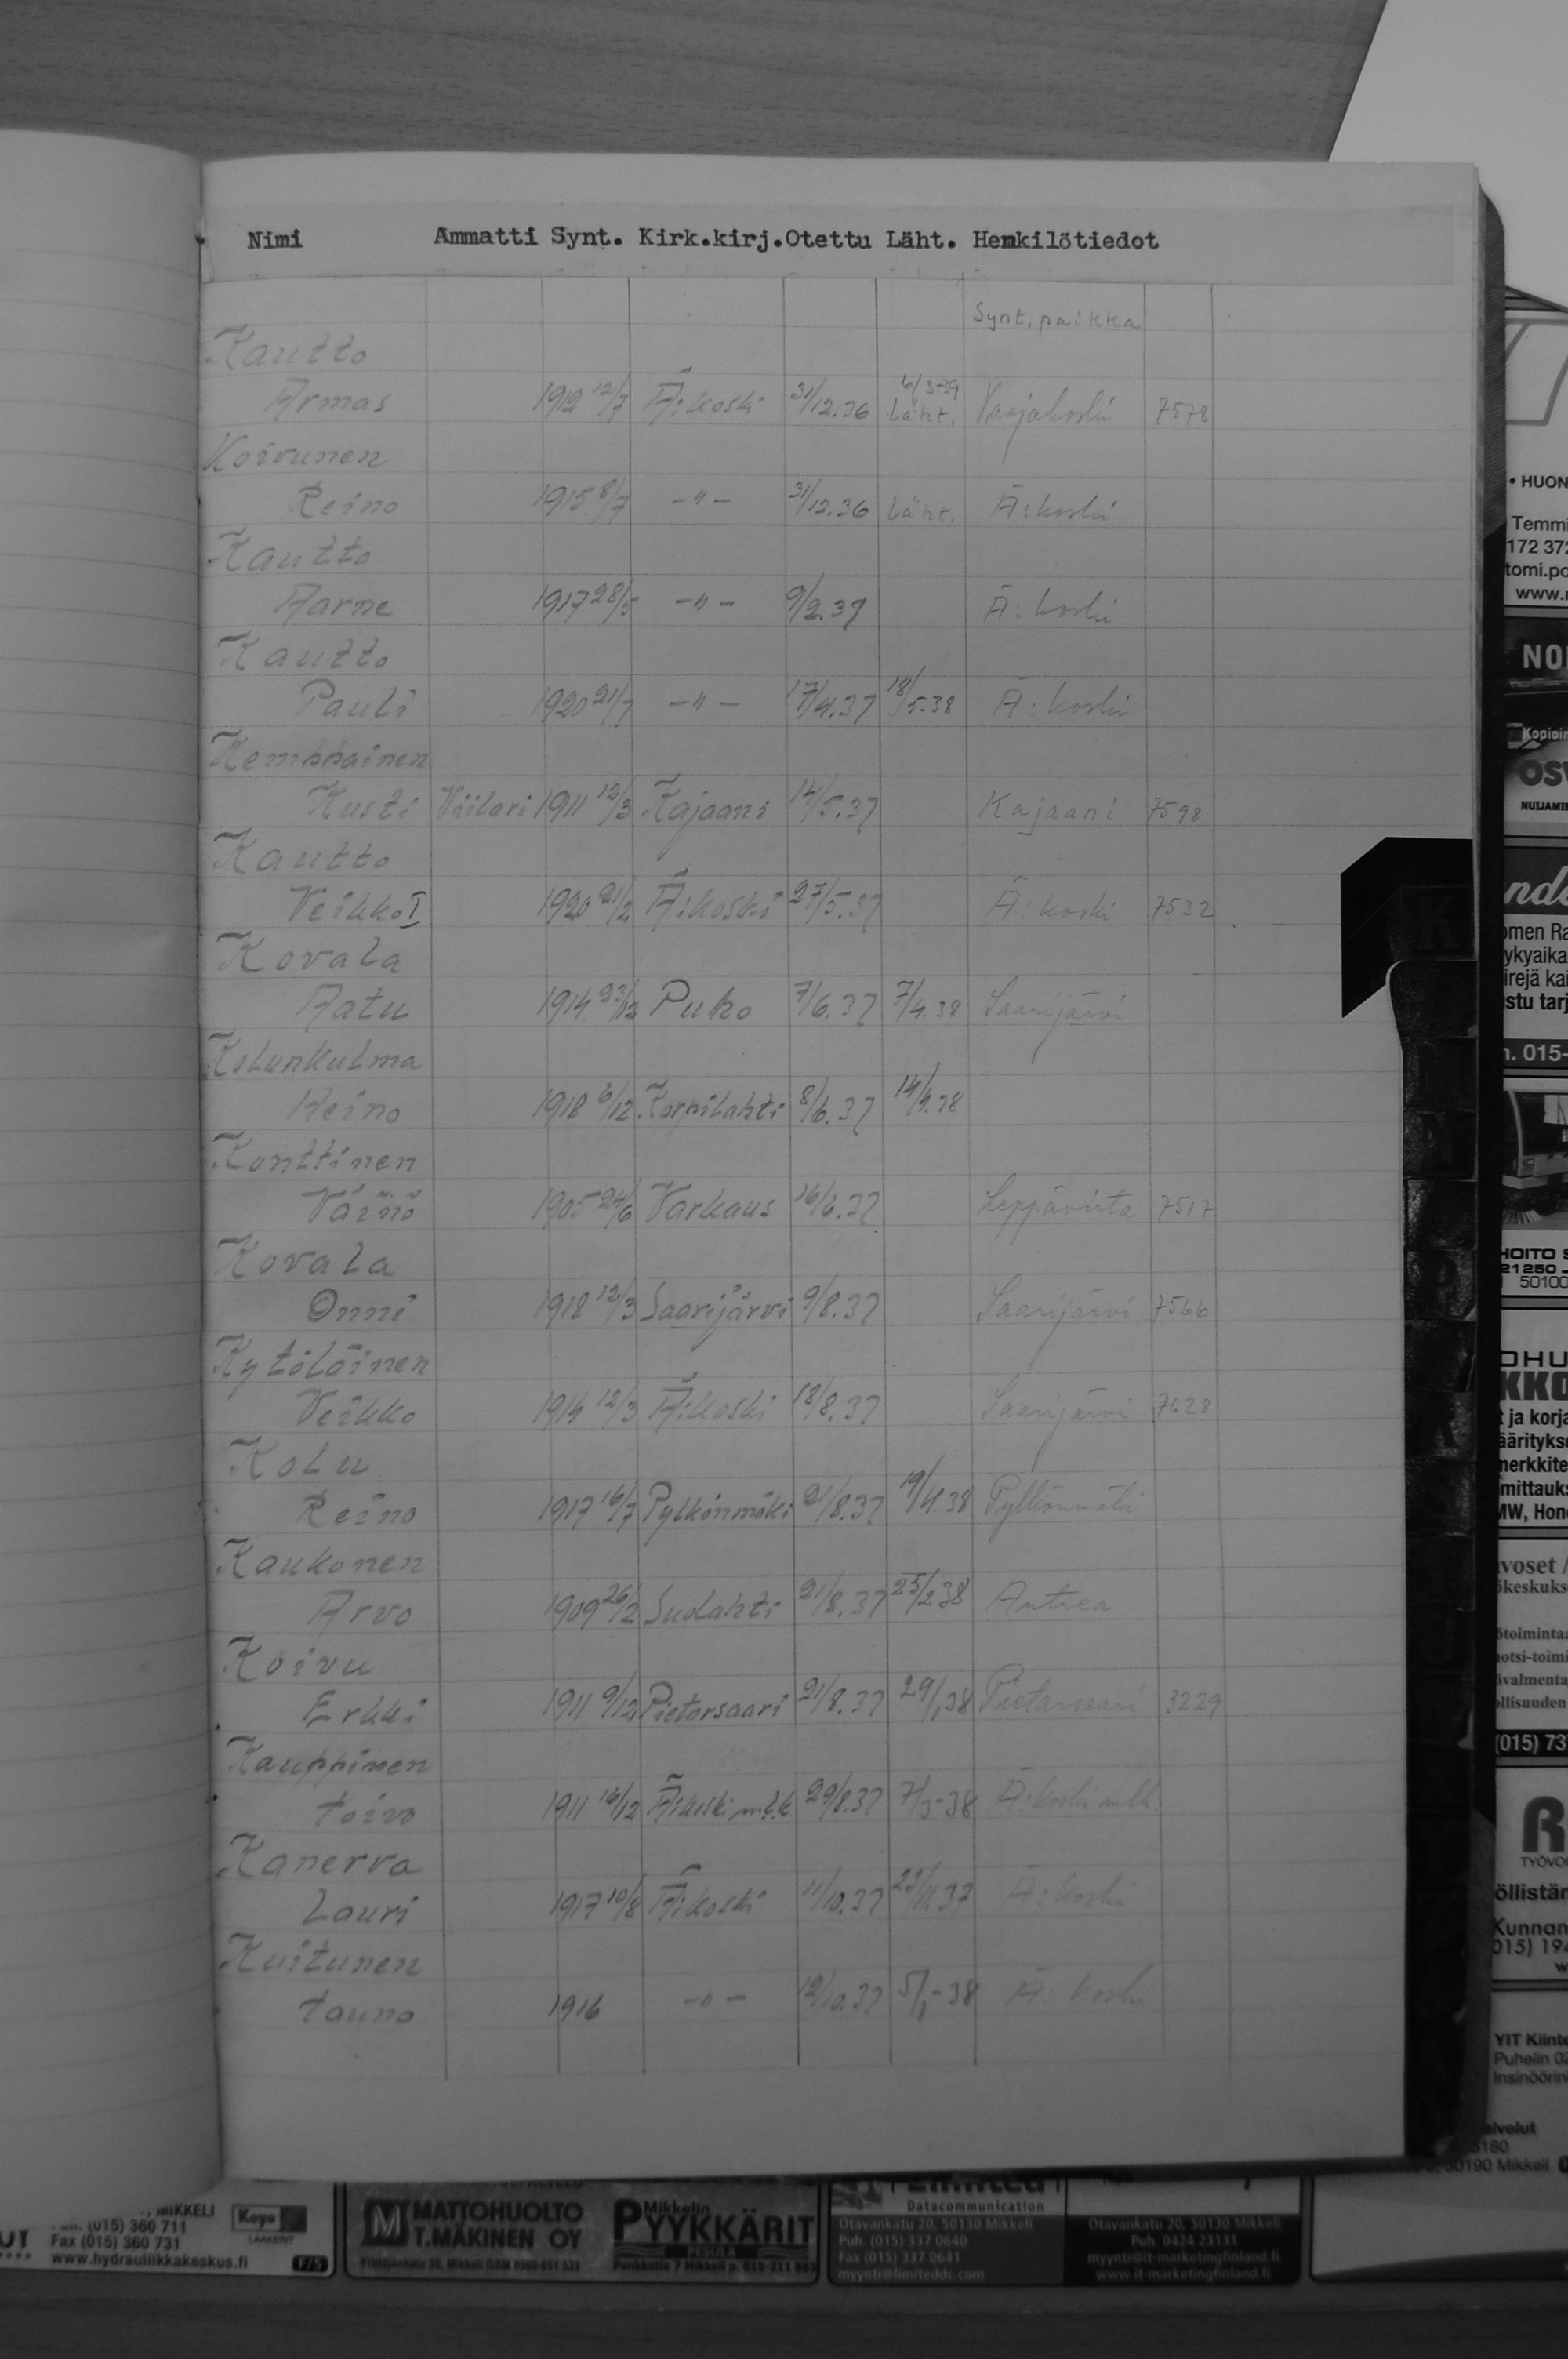 Nimi Ammatti Synt. Kirk.kirj. Otettu Läht. Henkilötiedot
Synt. paikka
Kautto
6/3-39
Armas 1912 12/7 Ä:koski 31/12.36 Läht. Vaajakoski 7578
Koivunen
Reino 1915 8/7 -"- 31/12.36 Läht. Ä:koski
Kautto
Aarne 1917 28/5 -"- 9/2.37 Ä:koski
Kautto
Pauli 1920 21/7 -"- 17/4.37 18/5.38 Ä:koski
Kemppainen
Kusti Viilari 1911 12/3 Kajaani 14/5.37 Kajaani 7598
Kautto
Veikko I 1920 21/2 Ä:koski 27/5.37 Ä:koski 7532
Kovala
Aatu 1914 23/12 Puko 7/6.37 7/4.38 Saarijärvi
Kolunkulma
Reino 1918 6/12 Korpilahti 8/6.37 14/4.38
Konttinen
Väinö 1905 24/6 Varkaus 16/6.37 Leppävirta 7517
Kovala
Onni 1918 12/3 Saarijärvi 9/8.37 Saarijärvi 7566
Kytöläinen
Veikko 1914 12/3 Ä:koski 18/8.37 Saarijärvi 7628
Kolu
Reino 1917 16/7 Pylkönmäki 21/8.37 19/4.38 Pylkönmäki
Kaukonen
Arvo 1909 26/2 Suolahti 21/8.37 25/2 38 Antrea
Koivu
Erkki 1911 9/12 Pietarsaari 21/8.37 29/1 38 Pietarsaari 3229
Kauppinen
Toivo 1911 16/12 Ä:koski mlk 29/8.37 7/3-38 Ä:koski mlk.
Kanerva
Lauri 1917 10/8 Ä:koski 11/10.37 23/11.37 Ä:koski
Kuitunen
Tauno 1916 -"- 12/10.37 5/1-38 Ä:koski
K
• HUON
Temmi
172 372
tomi.po
www.
NO
Kopioin
OSV
NUIJAMIE
omen Ra
ykyaika
irejä kai
stu tarj
n. 015-
HOITO S
21250
50100
OHU
KKO
t ja korja
äärityks
merkkite
mittauks
MW, Hon
voset /
ökeskuks
ötoimintaa
uotsi-toimi
övalmenta
öllisuuden
(015) 73
R
TYÖVO
öllistän
Kunnan
015) 194
YIT Kiinte
Puhelin 02
Insinöörin
alvelut
50190 Mikkeli
MIKKELI
(015) 360 711
Fax (015) 360 731
www.hydrauliikkakeskus.fi
Koyo
LAAKERIT
F/S
M MATTOHUOLTO
T.MÄKINEN OY
Mikkelin
PYYKKÄRIT
PESULA
Limited
Datacommunication
Otavankatu 20, 50130 Mikkeli
Puh. (015) 337 0640
Fax (015) 337 0641
myynti@limiteddc.com
Otavankatu 20, 50130 Mikkeli
Puh. 0424 23131
myynti@it-marketingfinland.fi
www.it-marketingfinland.fi